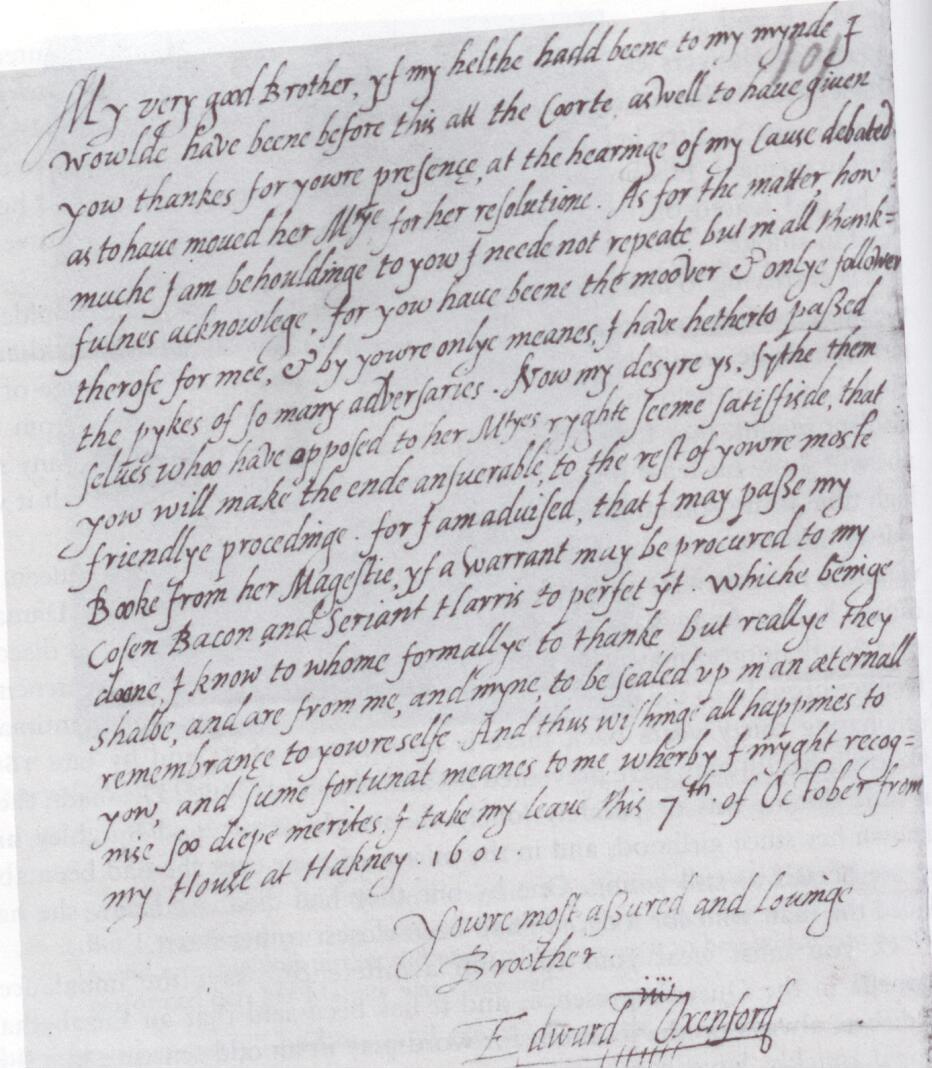 My very good Brother, yf my helthe hadd beene to my mynde I
wowlde have beene before this att the Coorte, as well to have given
yow thankes for yowre presence, at the hearinge of my Cause debated
as to have moued her Mtye for her resolutione. As for the matter, how
muche I am behouldinge to yow I neede not repeate but in all thank=
fulnes acknowlege, for yow haue beene the moover & onlye follower
therofe for mee, & by yowre onlye meanes, I have hetherto passed
the pykes of so many adversaries. Now my desyre ys, sythe them
selues whoo have opposed to her Mtyes ryghte seeme satisfisde, that
yow will make the ende ansuerable, to the rest of yowre moste
friendlye procedinge. for I am aduised, that I may passe my
Booke from her Magestie, yf a warrant may be procured to my
Cosen Bacon and Seriant Harris to perfet yt. Whiche beinge
doone, I know to whome formallye to thanke but reallye they
shalbe, and are from me, and myne, to be sealed up in an æternall
remembrance to yowreselfe. And thus wishinge all happines to
yow, and sume fortunat meanes to me wherby I myght recog=
nise soo diepe merites, I take my leave this 7th of October from
my House at Hakney 1601
Yowre most assured and louinge
Broother
Edward Oxenford